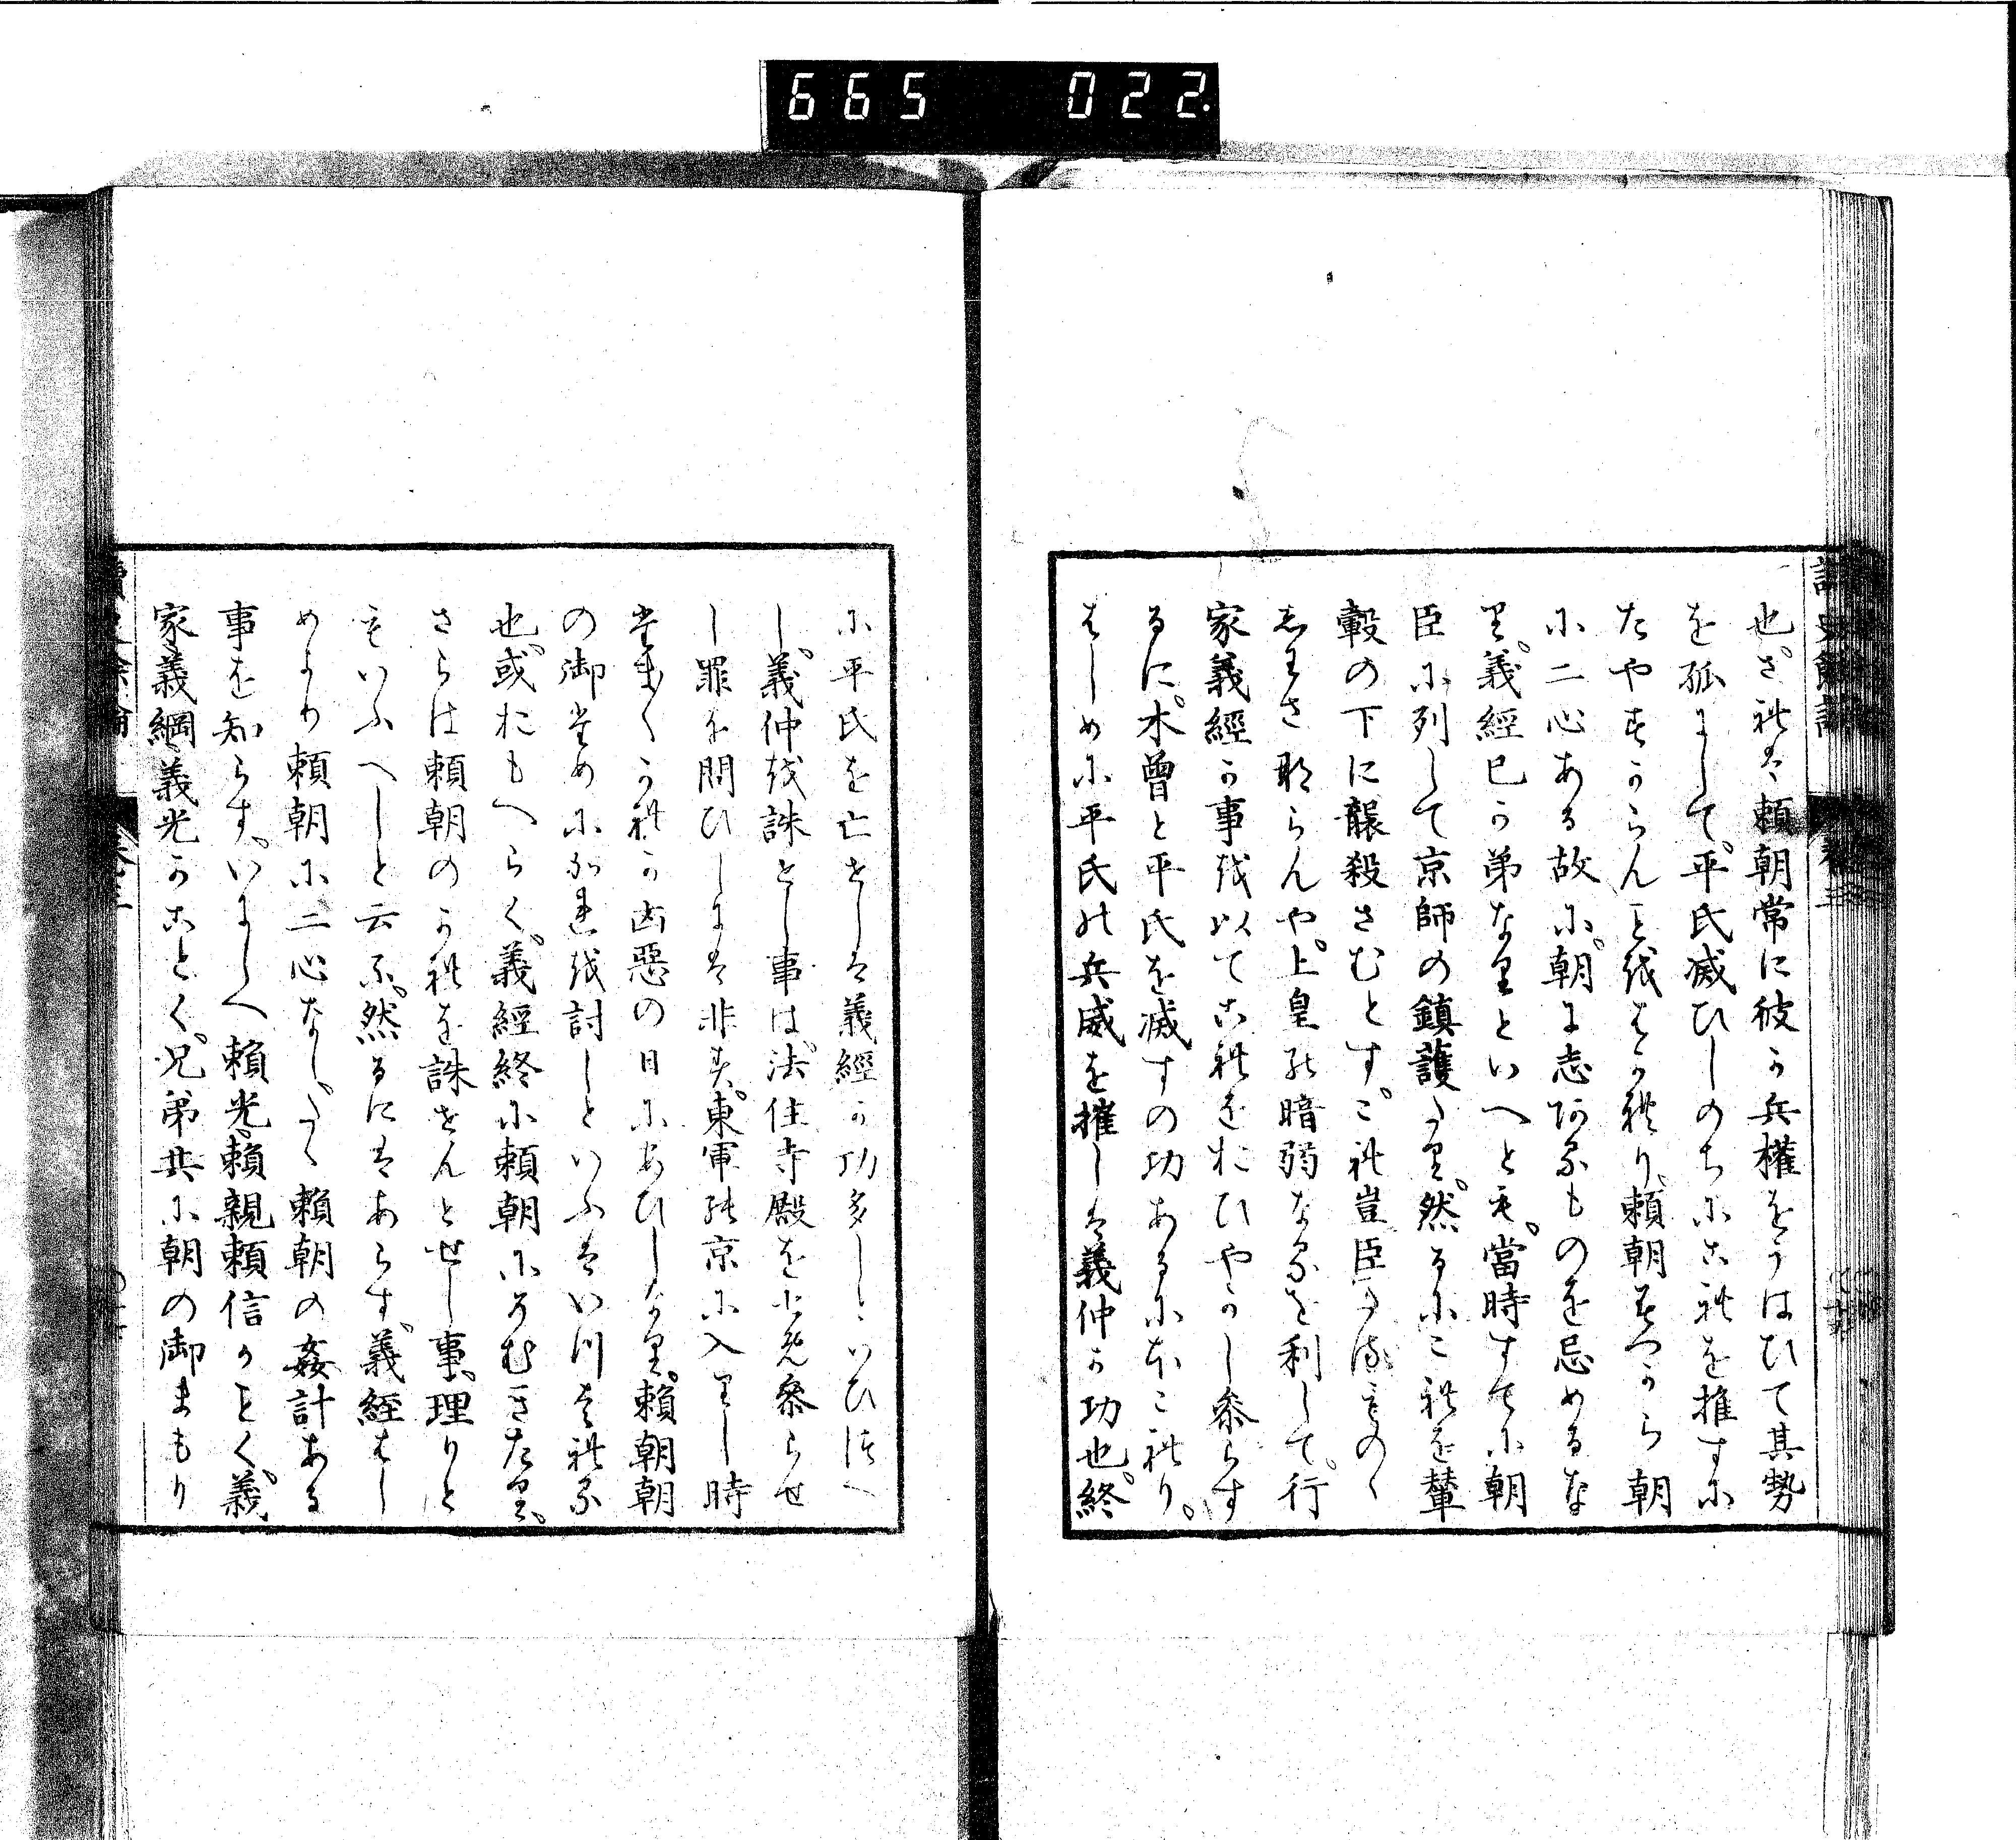 665 022.
也。されは頼朝常に彼か兵權をうはひて其勢
を孤にして。平氏滅ひしのちにこれを推すに
たやすからんことをはかれり。頼朝みつから朝
に二心ある故に。朝に志あるものを忌めるな
り。義經已か弟なりといへとも。當時すてに朝
臣に列して京師の鎮護たり。然るにこれを輦
轂の下に襲殺さむとす。これ豈臣たるものゝ
しわさならんや。上皇の暗弱なるを利して。行
家義經か事を以てこれをおひやかし參らす
るに。木曾と平氏を滅すの功あるにおこれり。
はしめに平氏の兵威を摧しは義仲か功也。終
に平氏を亡せしは義經か功多しといひつへ
し。義仲を誅せし事は。法住寺殿を
參らせ
し罪を問ひしには非す。東軍の京に入りし時
たまたまかれか凶惡の日にあひしなり。頼朝朝
の御ために此逆を討しといふはいつはれる
也。或おもへらく。義經終に頼朝にそむきたり。
さらは頼朝のかれを誅せんとせし事。理りと
もいふへしと云ふ。然るにはあらす。義經はし
めより頼朝に二心なし。たゝ頼朝の姦計ある
事を知らす。いにしへ頼光。頼親頼信かことく。義
家。義綱義光かことく。兄弟共に朝の御まもり
讀史餘論 卷二